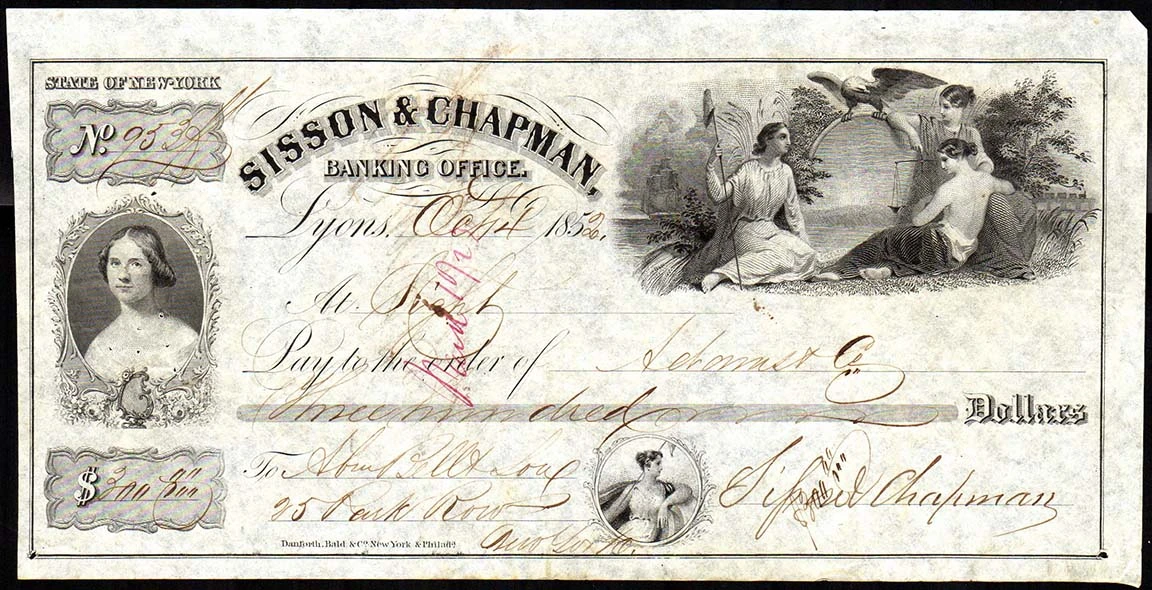 STATE OF NEW-YORK
No. 953
SISSON & CHAPMAN,
BANKING OFFICE.
Lyons, Oct 4 1852.
At Sight
Pay to the order of Adams & Co
Three hundred Dollars
$300
To
25 Park Row
New York.
Sisson & Chapman
Danforth, Bald & Co. New York & Philada.